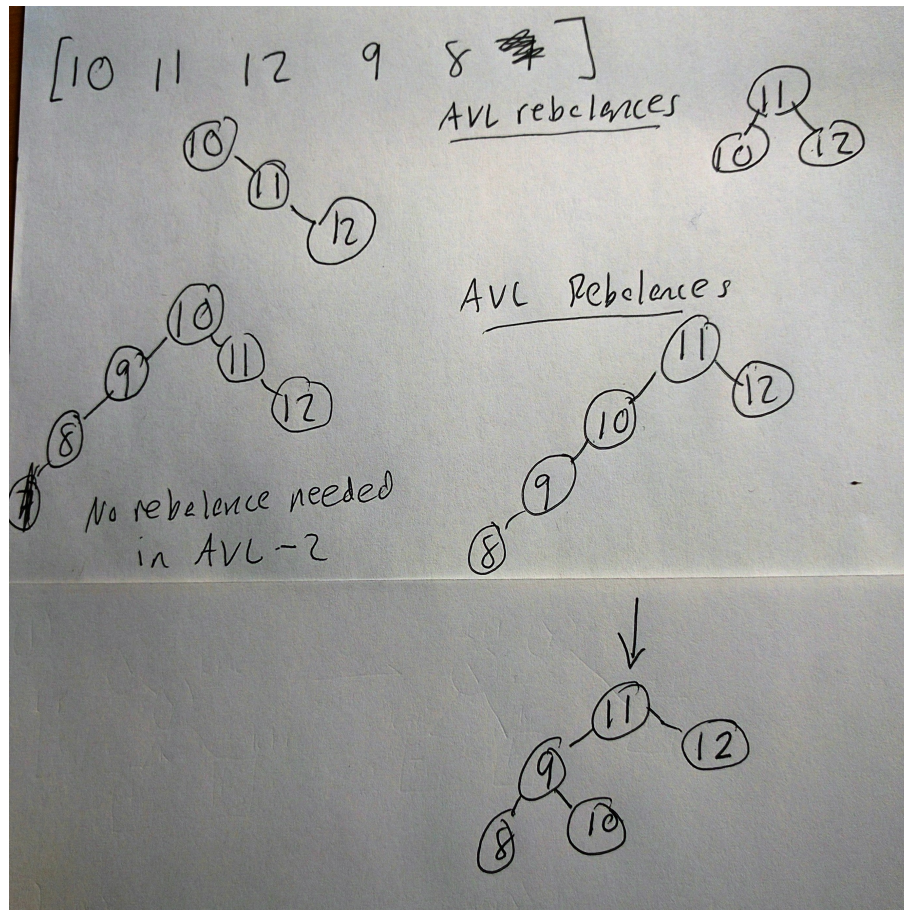 [10 11 12 9 8 ]
AVL rebalances
11
10 12
10
11
12
10
9 11
8 12
No rebalence needed
in AVL-2
AVL Rebalences
11
10 12
9
8
11
9 12
8 10